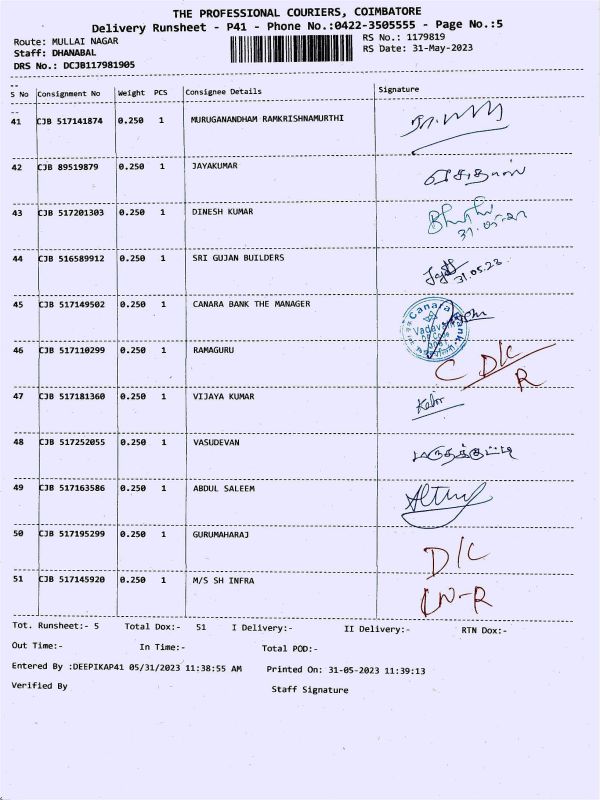 THE PROFESSIONAL COURIERS, COIMBATORE
Delivery Runsheet - P41 - Phone No.:0422-3505555 - Page No.:5
Route: MULLAI NAGAR RS No.: 1179819
Staff: DHANABAL RS Date: 31-May-2023
DRS No.: DCJB117981905
S No Consignment No Weight PCS Consignee Details Signature
41 CJB 517141874 0.250 1 MURUGANANDHAM RAMKRISHNAMURTHI
42 CJB 89519879 0.250 1 JAYAKUMAR
43 CJB 517201303 0.250 1 DINESH KUMAR
31.05.23
44 CJB 516589912 0.250 1 SRI GUJAN BUILDERS
31.05.23
45 CJB 517149502 0.250 1 CANARA BANK THE MANAGER
Canara Bank
46 CJB 517110299 0.250 1 RAMAGURU
C D/C
R
47 CJB 517181360 0.250 1 VIJAYA KUMAR
48 CJB 517252055 0.250 1 VASUDEVAN
49 CJB 517163586 0.250 1 ABDUL SALEEM
50 CJB 517195299 0.250 1 GURUMAHARAJ
D/C
51 CJB 517145920 0.250 1 M/S SH INFRA
Tot. Runsheet:- 5 Total Dox:- 51 I Delivery:- II Delivery:- RTN Dox:-
Out Time:- In Time:- Total POD:-
Entered By :DEEPIKAP41 05/31/2023 11:38:55 AM Printed On: 31-05-2023 11:39:13
Verified By Staff Signature